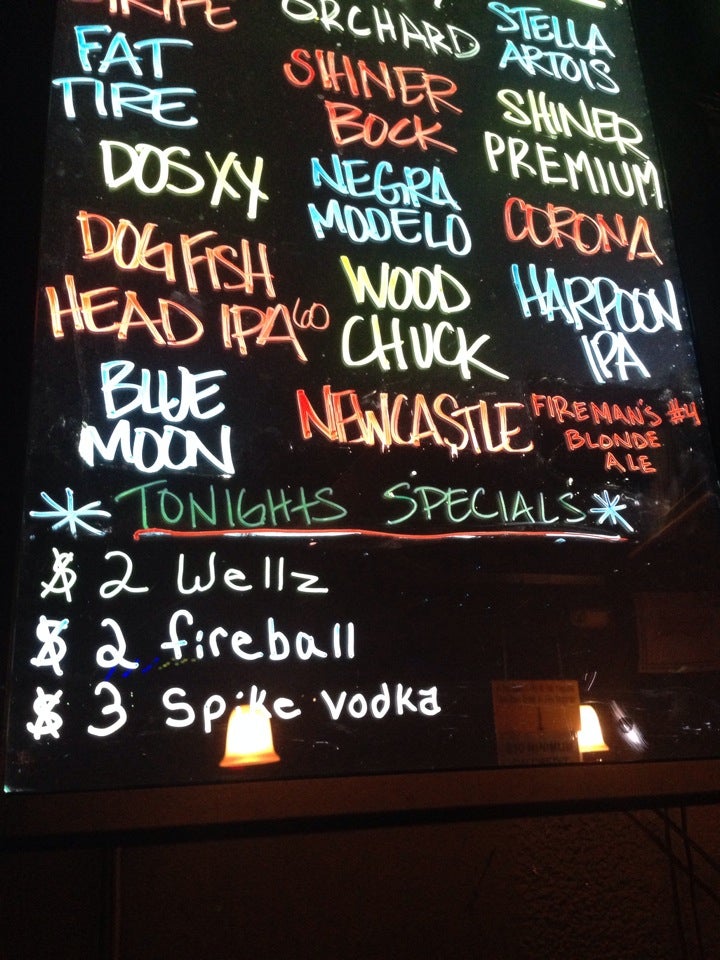 ORCHARD
STELLA
ARTOIS
FAT
TIRE
SHINER
BOCK
SHINER
PREMIUM
DOS XX
NEGRA
MODELO
CORONA
DOGFISH
HEAD IPA 60
WOOD
CHUCK
HARPOON
IPA
BLUE
MOON
NEWCASTLE
FIREMAN'S #4
BLONDE
ALE
* TONIGHTS SPECIALS *
$ 2 Wellz
$ 2 fireball
$ 3 Spike vodka